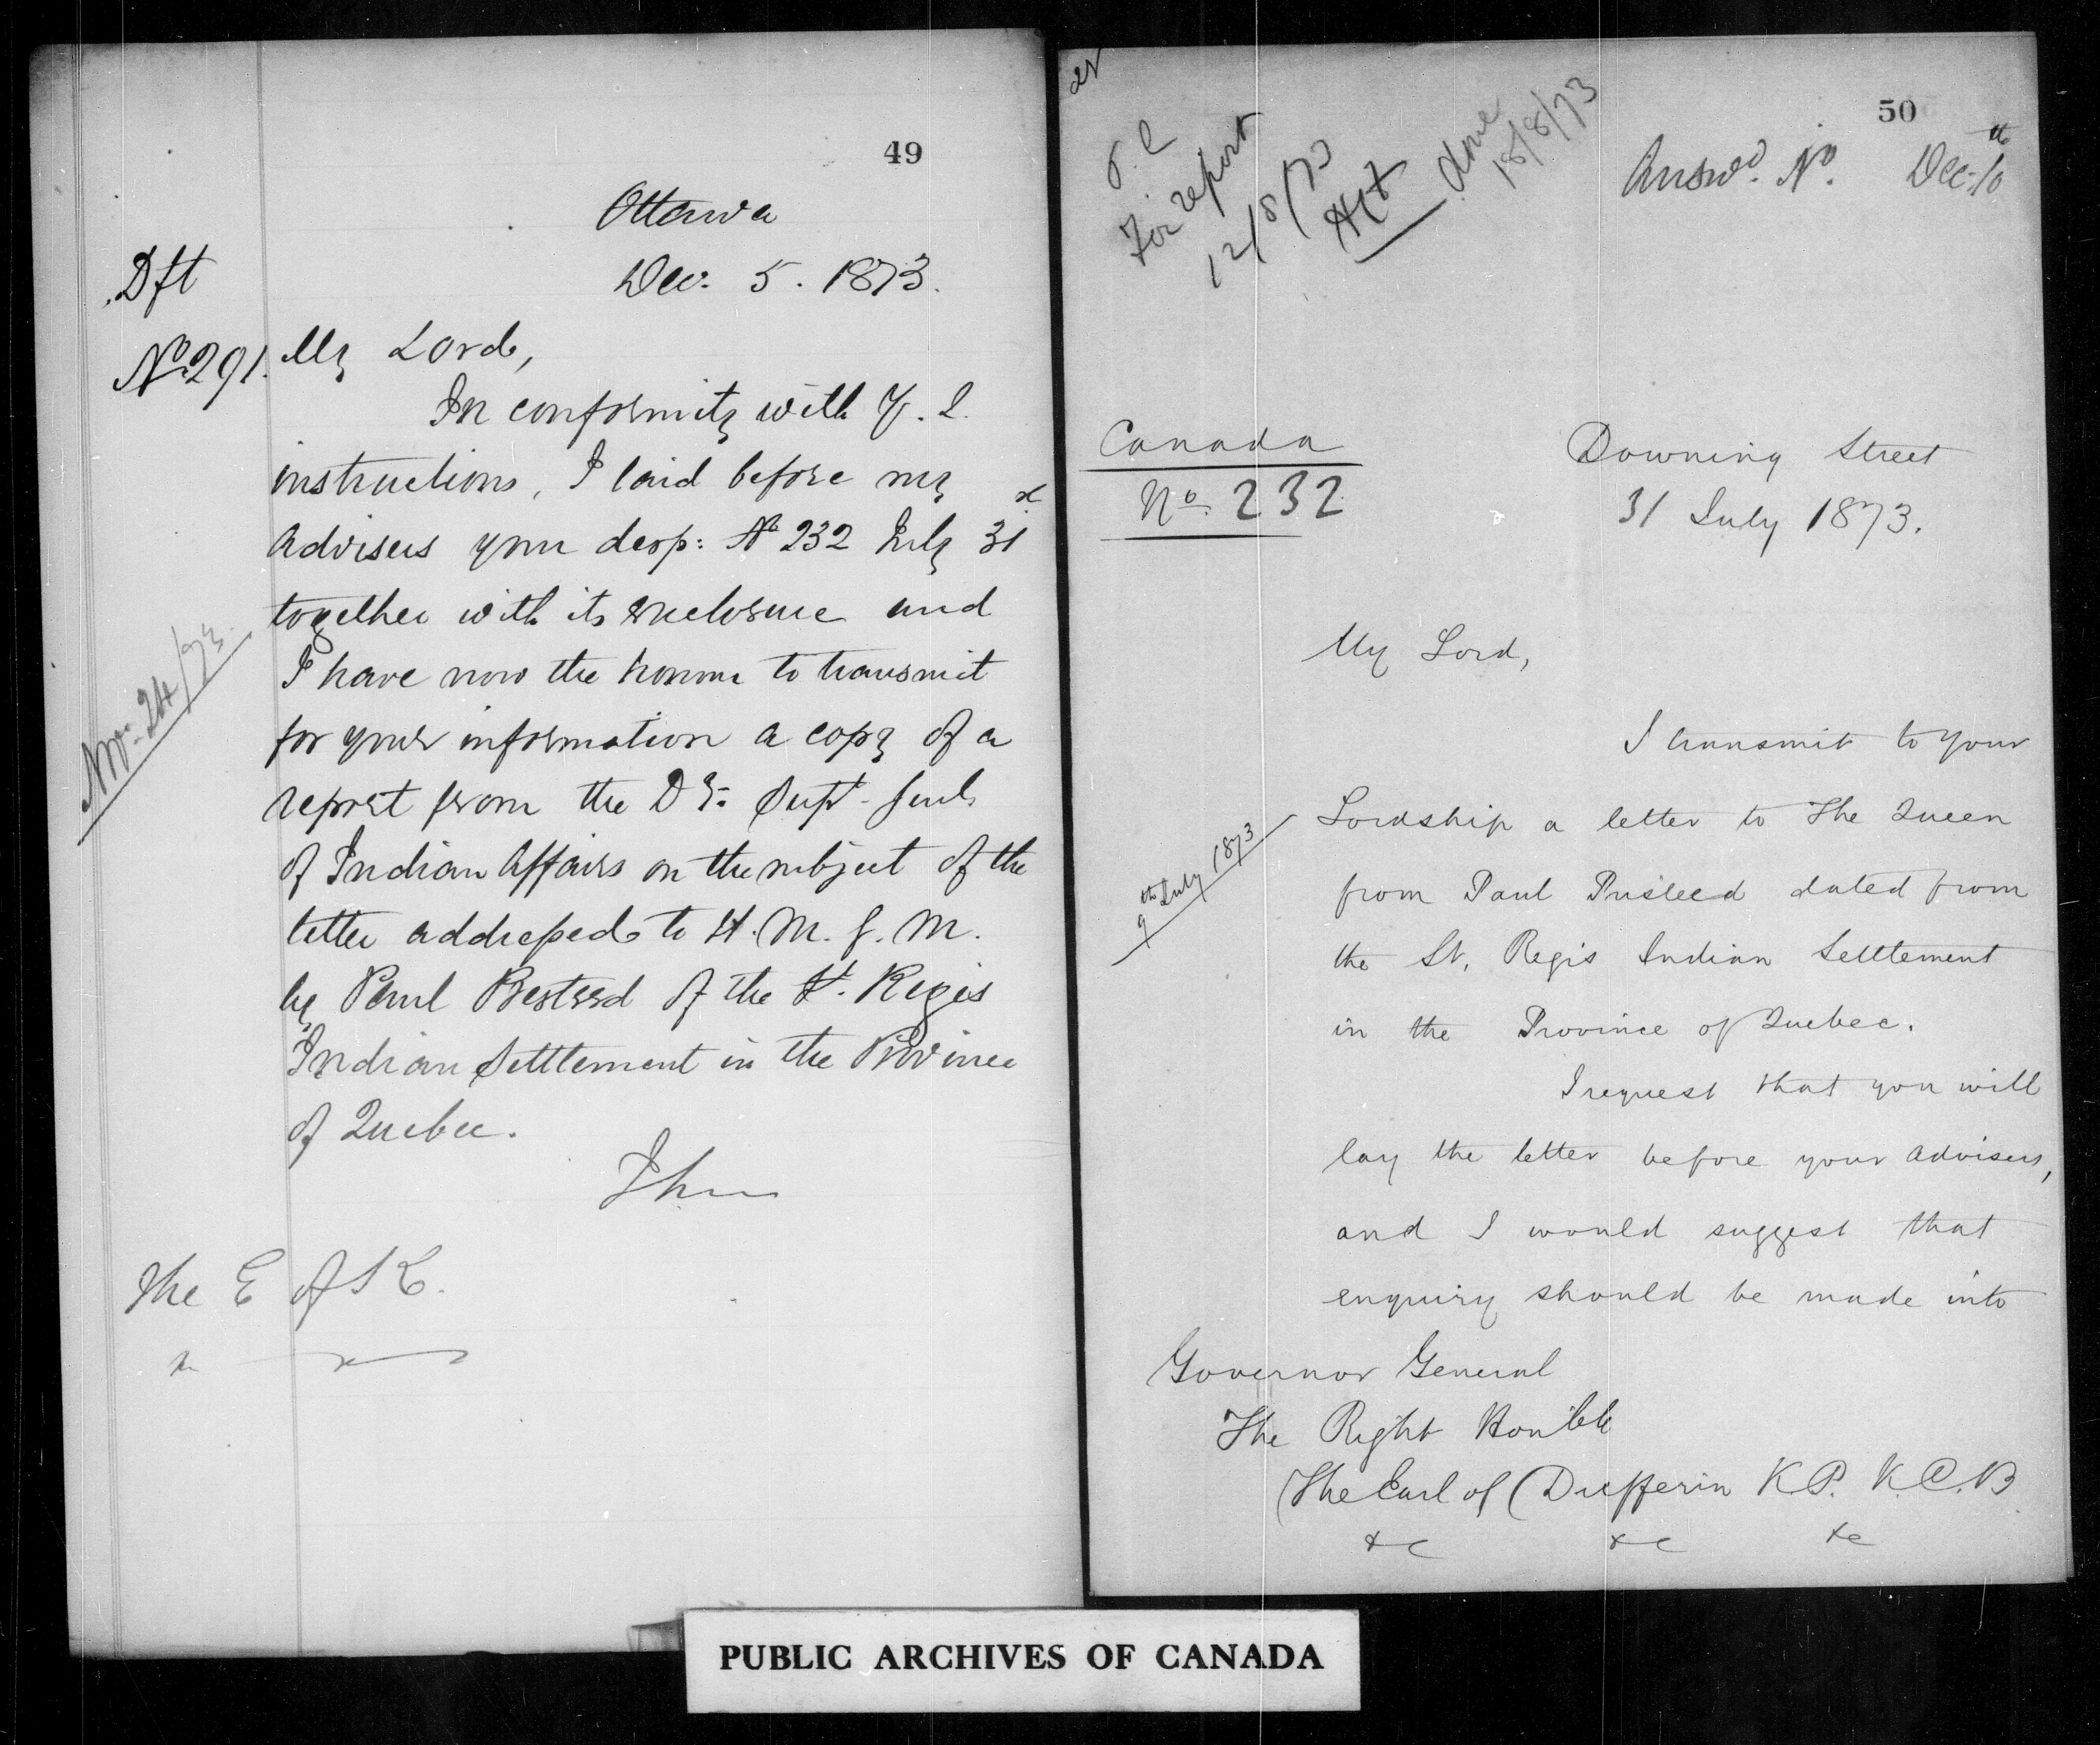 49
Ottawa
Dec. 5. 1873.
Dft
No 291.
My Lord,
In conformity with Y. L.
instructions, I laid before my
advisers your desp: No 232 July 31
together with its enclosure and
I have now the honour to transmit
for your information a copy of a
Nov. 24/73.
report from the Dy. Supt. Genl.
of Indian Affairs on the subject of the
letter addressed to H. M. G. M.
by Paul of the St. Regis
Indian Settlement in the Province
of Quebec.
I have
The E of K.
50
For report
12/8/73
done
18/8/73
Answd. No. Dec. 10th
Canada
No. 232
Downing Street
31 July 1873.
My Lord,
I transmit to Your
Lordship a letter to The Queen
9th July 1873
from Paul dated from
the St. Regis Indian Settlement
in the Province of Quebec.
I request that you will
lay the letter before your advisers,
and I would suggest that
enquiry should be made into
Governor General
The Right Honble
The Earl of Dufferin K.P. K.C.B
&c &c &c
PUBLIC ARCHIVES OF CANADA